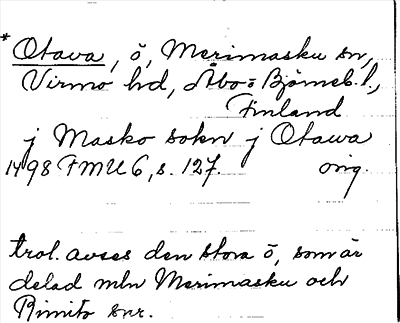 * Otava, ö, Merimasku sn,
Virmo hd, Åbo o Björneb. l.,
Finland
j Masko sokn j Otawa
1498 FMU 6, s. 127. orig.
trol. avses den stora ö, som är
delad mln Merimasku och
Rimito snr.